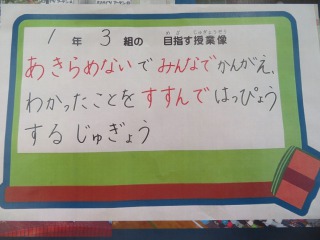 1年3組の目指す授業像
あきらめないでみんなでかんがえ、
わかったことをすすんではっぴょう
するじゅぎょう